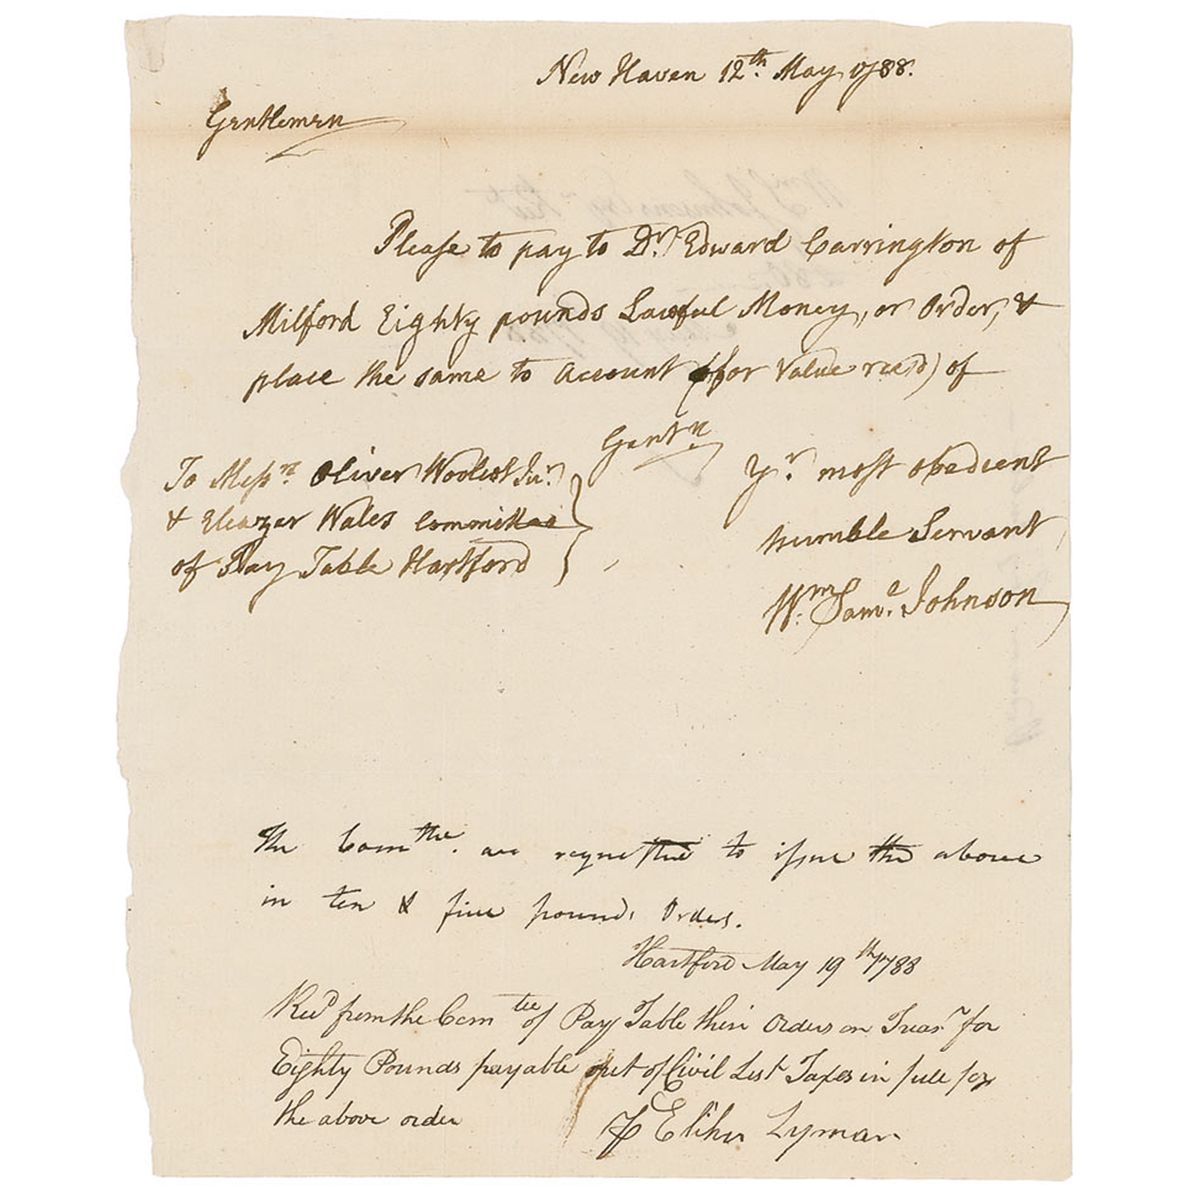 New Haven 12th. May 1788.
Gentlemen
Please to pay to Dr. Edward Carrington of
Milford Eighty pounds Lawful Money, or Order, &
place the same to Account (for Value recd) of
Gentn
To Messrs. Oliver Wolcot Jur.
& Eleazer Wales Committee
of Pay Table Hartford
Yr. most obedient
humble Servant
Wm. Saml. Johnson
The Comttee. are requested to issue the above
in ten & five pounds Orders.
Hartford May 19th 1788
Recd from the Comtee of Pay Table their Orders on Treasr for
Eighty Pounds payable out of Civil List Taxes in full for
the above order
Elihu Lyman